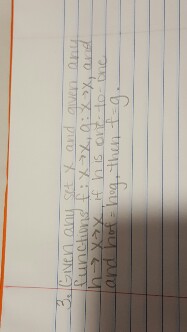 3. Given any set X and given any
functions f: X→X, g: X→X, and
h→ X→X if h is one-to-one
and hof = hog, then f=g.